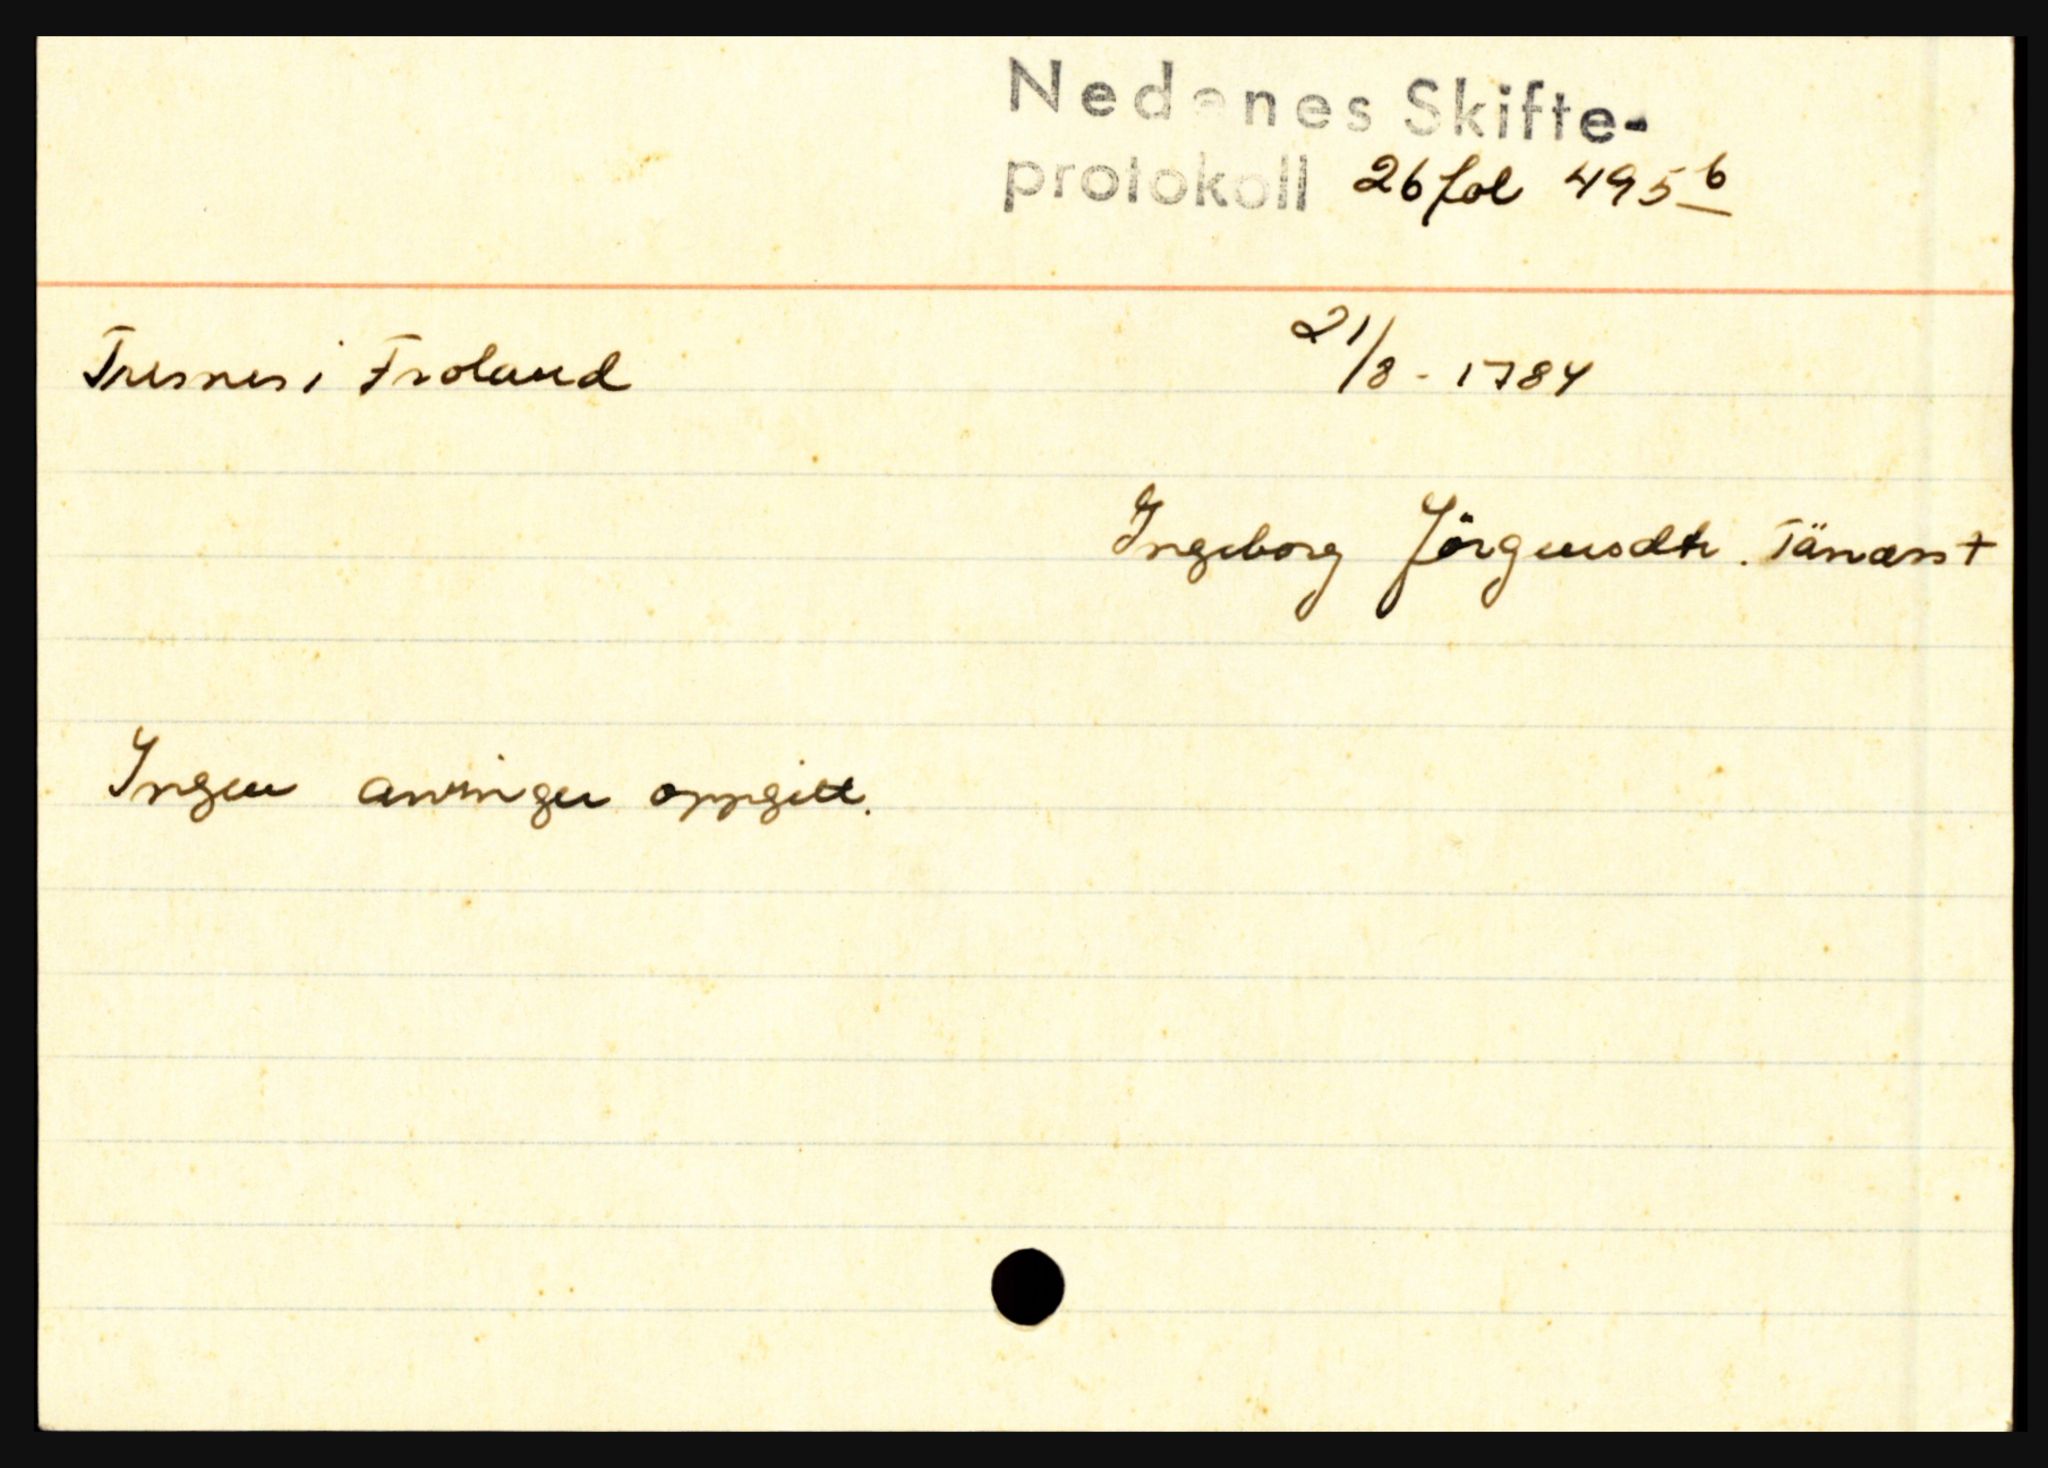 Nedenes Skifte-
protokoll 26 fol 495 b
Tresnes i Froland
21/8 - 1784
Ingeborg Jörgensdtr.
Ingen arvinger oppgitt.